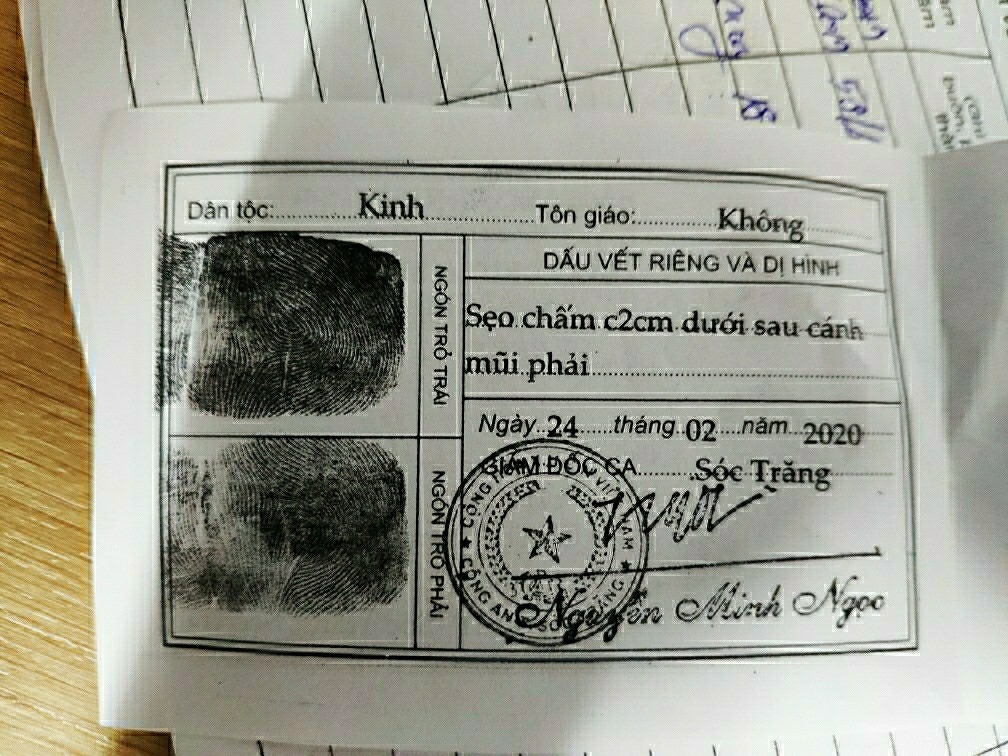 Dân tộc: Kinh Tôn giáo: Không
NGÓN TRỎ TRÁI
DẤU VẾT RIÊNG VÀ DỊ HÌNH
Sẹo chấm c2cm dưới sau cánh
mũi phải
Ngày 24 tháng 02 năm 2020
GIÁM ĐỐC CA Sóc Trăng
NGÓN TRỎ PHẢI
Nguyễn Minh Ngọc